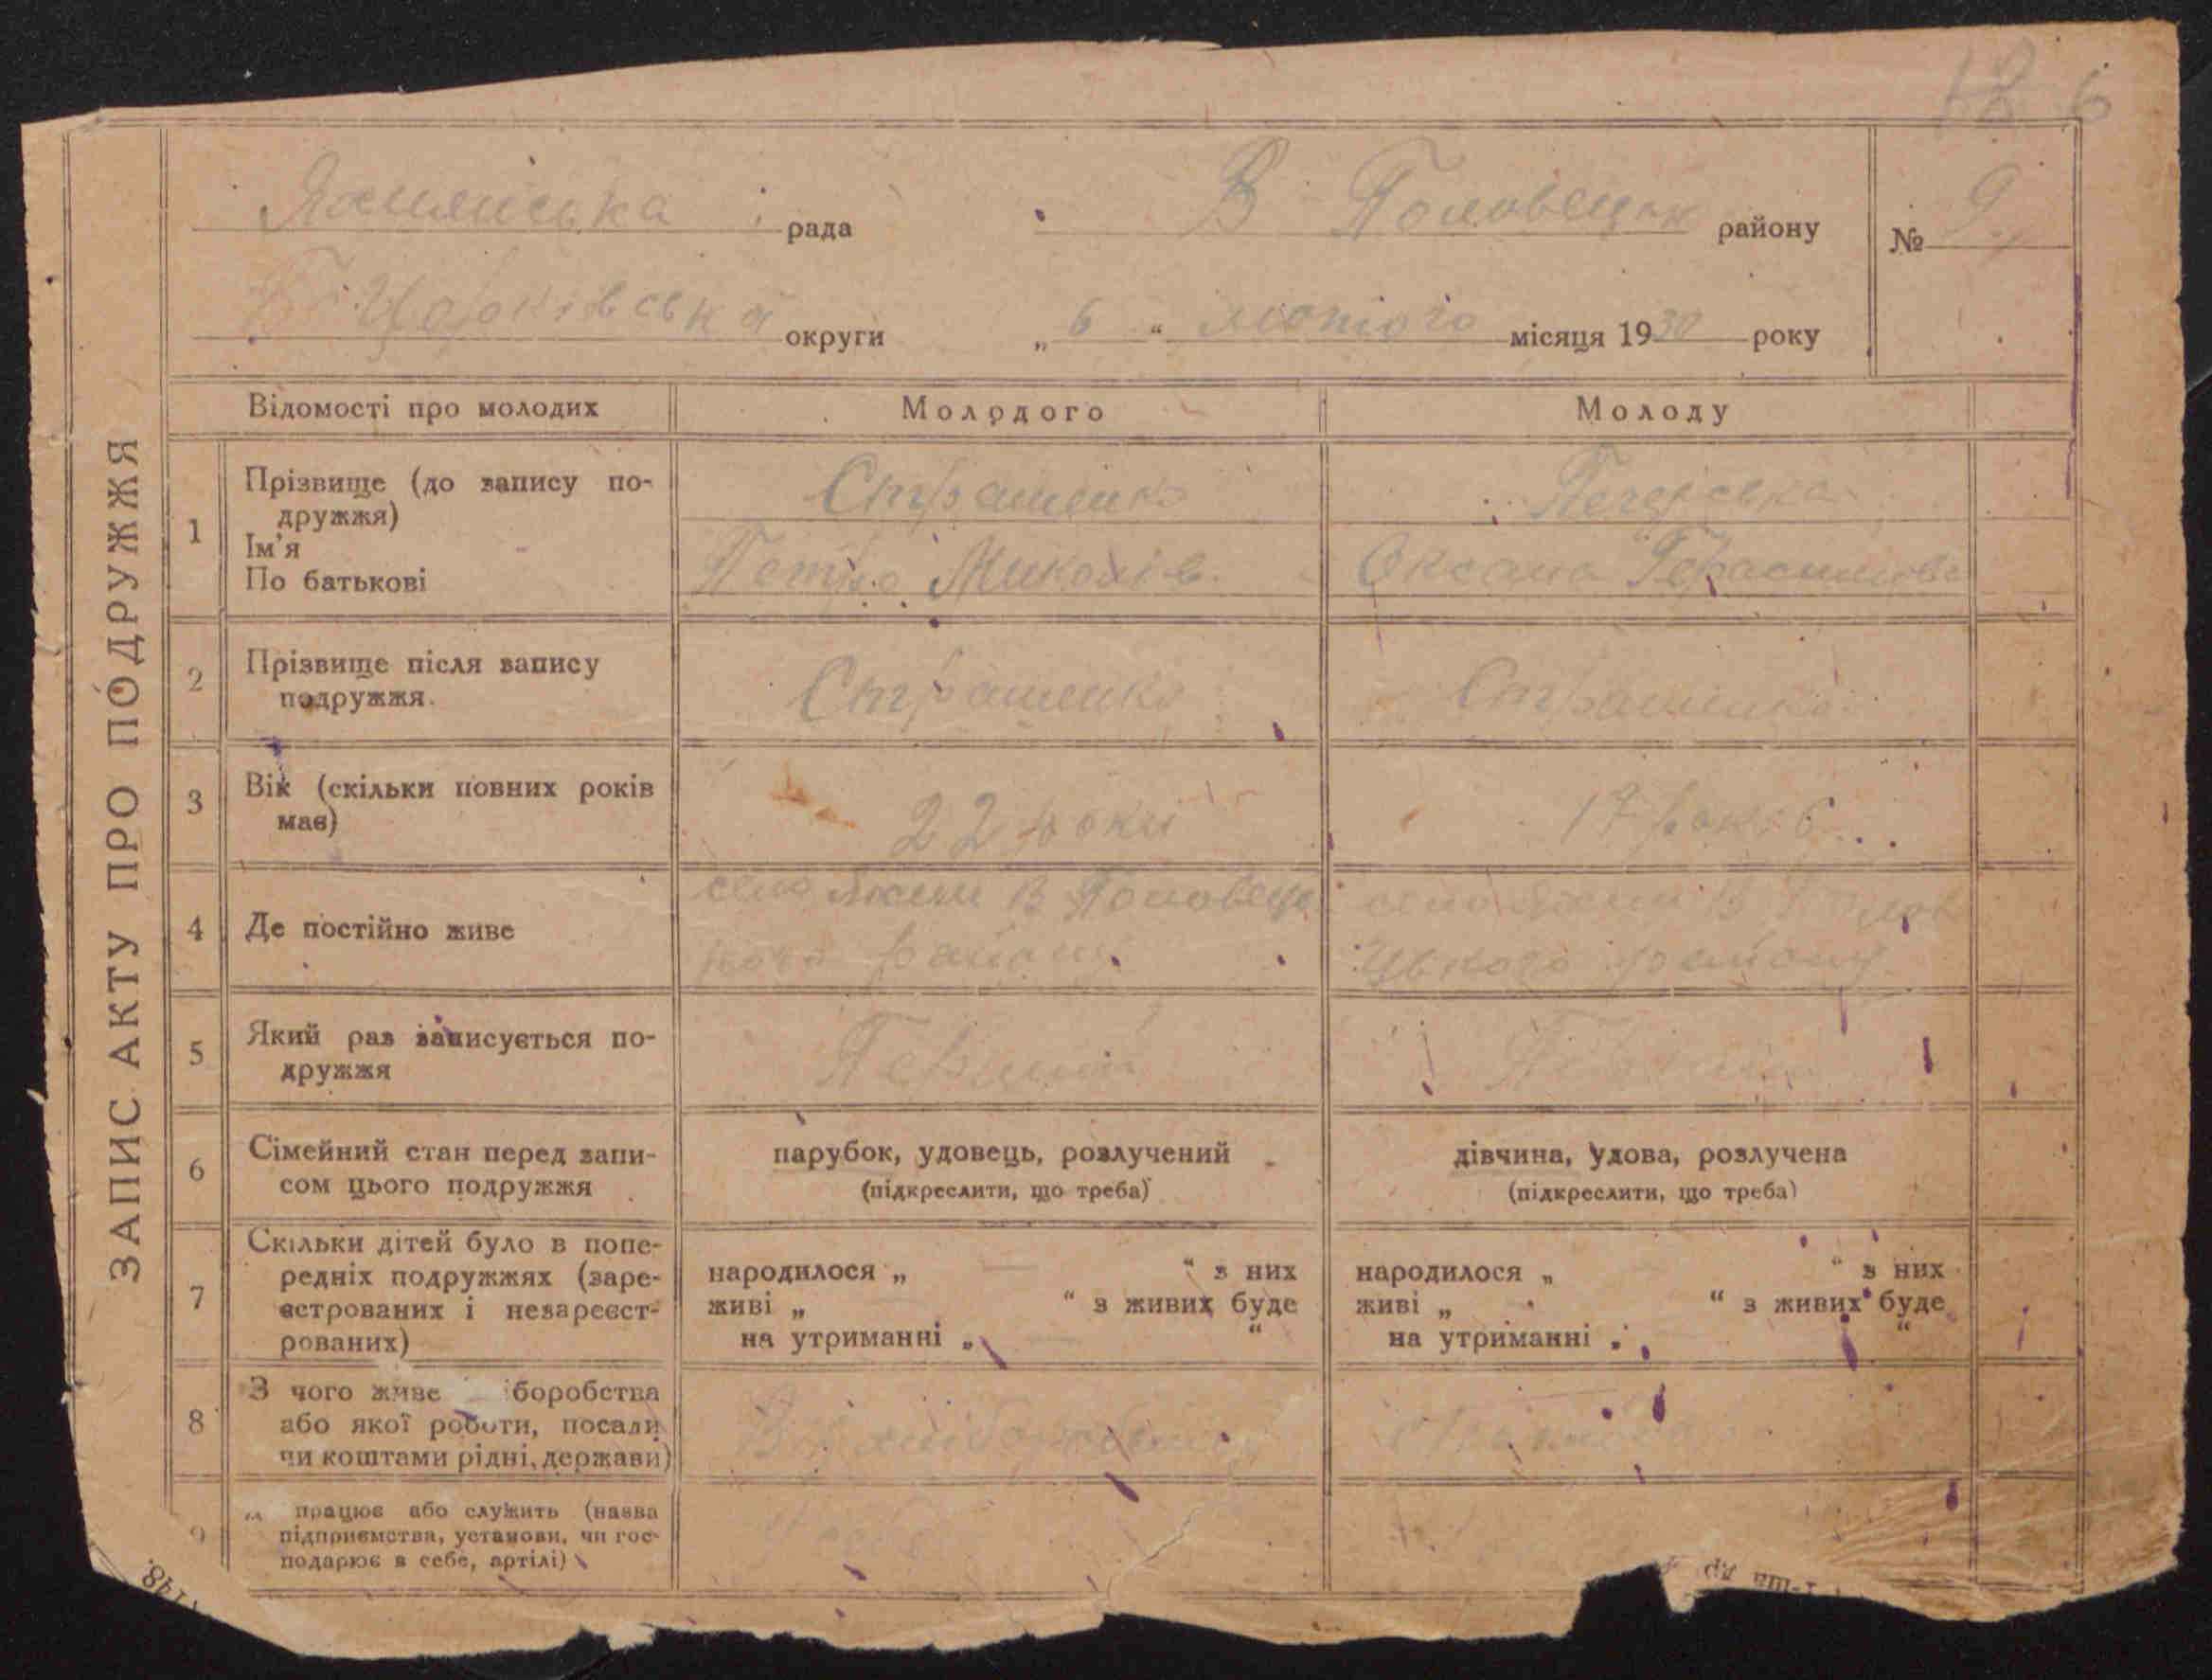 6
рада В Половецьк району № 9
Б Церківська округи „ 6 “ лютого місяця 1930 року
ЗАПИС АКТУ ПРО ПОДРУЖЖЯ
Відомості про молодих Молодого Молоду
1 Прізвище (до запису по-
дружжя)
Ім'я
По батькові
Страшенко
Петро Миколів.
Печерська
Оксана Герасимова
2 Прізвище після запису
подружжя.
Страшенко
Страшенко
3 Вік (скільки повних років
має)
22 роки
17 років
4 Де постійно живе
село В Половець
кого району
село В Полов
цького району
5 Який раз записується по-
дружжя
Перший
Перший
6 Сімейний стан перед запи-
сом цього подружжя
парубок, удовець, розлучений
(підкреслити, що треба)
дівчина, удова, розлучена
(підкреслити, що треба)
7 Скільки дітей було в попе-
редніх подружжях (заре-
єстрованих і незареєст-
рованих)
народилося „ “ з них
живі „ “ з живих буде
на утриманні „ “
народилося „ “ з них
живі „ “ з живих буде
на утриманні „ “
8 З чого живе боробства
або якої роботи, посади
чи коштами рідні, держави)
9 працює або служить (назва
підприємства, установи, чи гос-
подарює в себе, артілі)